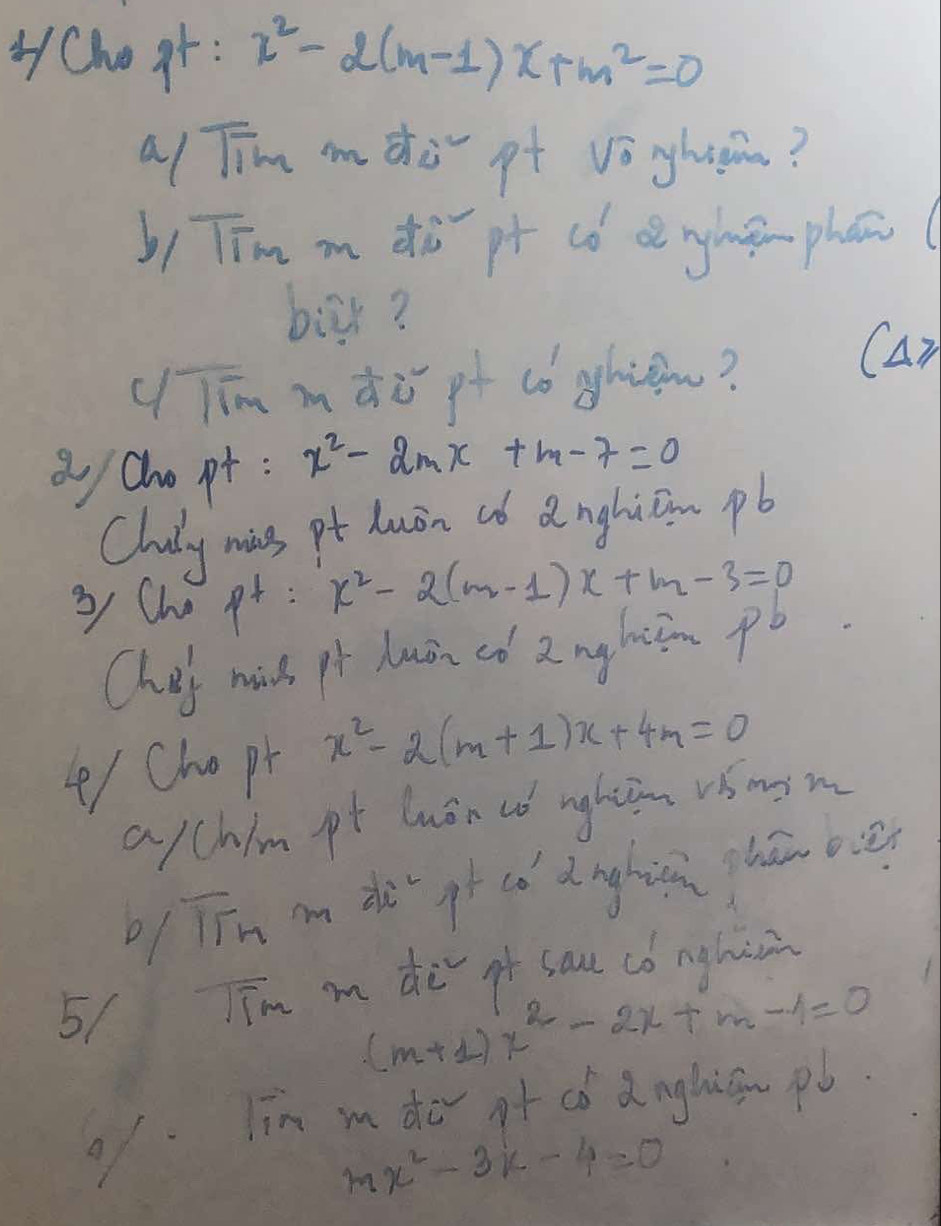 1/ Cho pt: x² - 2(m-1)x+m²=0
a/ Tìm m để pt vô nghiệm?
b/ Tìm m để pt có 2 nghiệm phân (
biệt?
c/ Tìm m để pt có nghiệm? (Δ≥
2/ Cho pt: x² - 2mx + m - 7 = 0
Chứng minh pt luôn có 2 nghiệm pb
3/ Cho pt: x² - 2(m-1)x + m - 3=0
Chứng minh pt luôn có 2 nghiệm pb.
4/ Cho pt x² - 2(m+1)x + 4m = 0
a/ Ch/m pt luôn có nghiệm với mọi m
b/ Tìm m để pt có 2 nghiệm phân biệt
5/ Tìm m để pt sau có nghiệm
(m+1)x² - 2x + m - 1=0
Tìm m để pt có 2 nghiệm pb.
mx² - 3x - 4 = 0